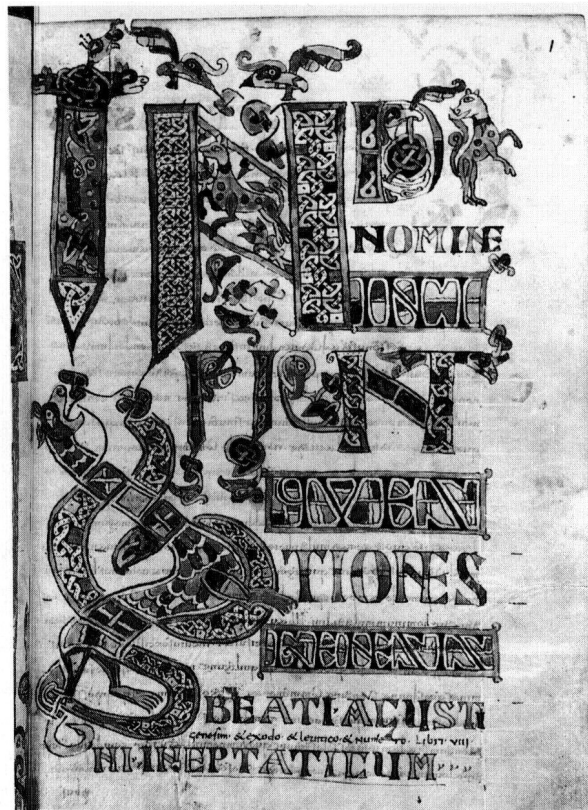 1
IN DI
NOMINE
INCI
PIUNT
QVES
TIONES
BEATI·AGUSTI
Genesim· & exodo· & leuitico· & Numero· Libri VII
NI·IN·EPTATICUM